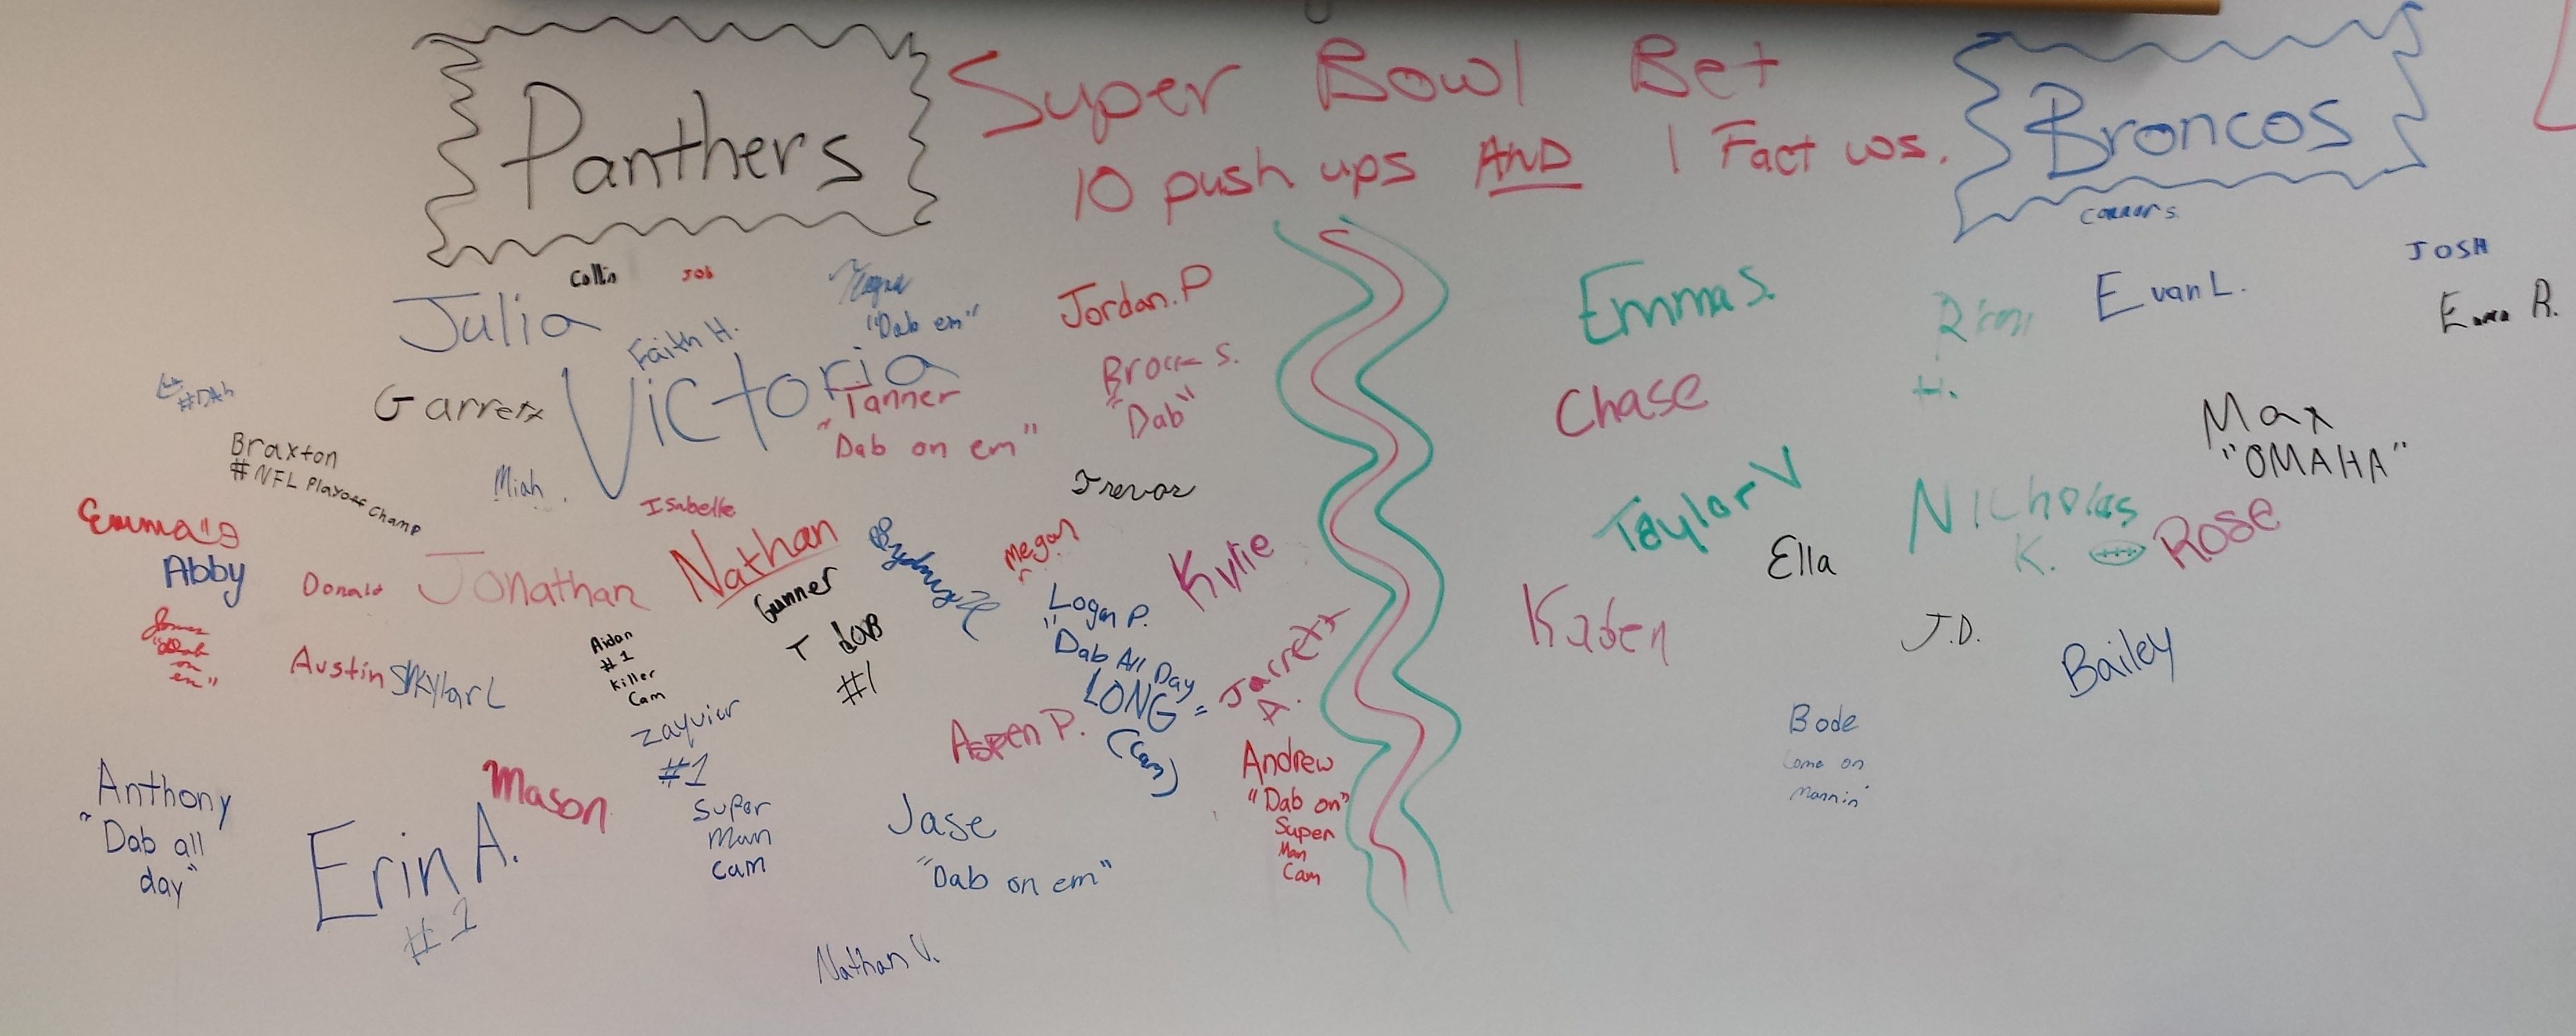 Panthers
Super Bowl Bet
10 push ups AND 1 Fact ws.
Broncos
Connor S.
Collin
JOB
Julia
Faith H.
"Dab em"
Jordan.P
Victoria
Garrett
#Dab
Tanner
"Dab on em"
Brock S.
"Dab"
Braxton
#NFL Playoff Champ
Miah.
Isabelle
Trevor
Emma's
Abby
Donald
Jonathan
Nathan
Gunner
Sydney
Megan
Kylie
"Dab
on
em"
Austin
Skylar L
Aidan
#1
Killer
Cam
T
#1
Logan P.
"Dab All Day
LONG"
(Cam)
Jarrett
A.
Zayvier
#1
Super
Man
Cam
Aspen P.
Andrew
"Dab on"
Super
Man
Cam
Anthony
"Dab all
day"
Mason
Erin A.
#1
Jase
"Dab on em"
Nathan V.
Emma S.
H.
Evan L.
JOSH
Emma R.
Chase
Max
"OMAHA"
Taylor V
Ella
Nicholas
K.
Rose
Kaden
J.D.
Bailey
Bode
Come on
Mannin'